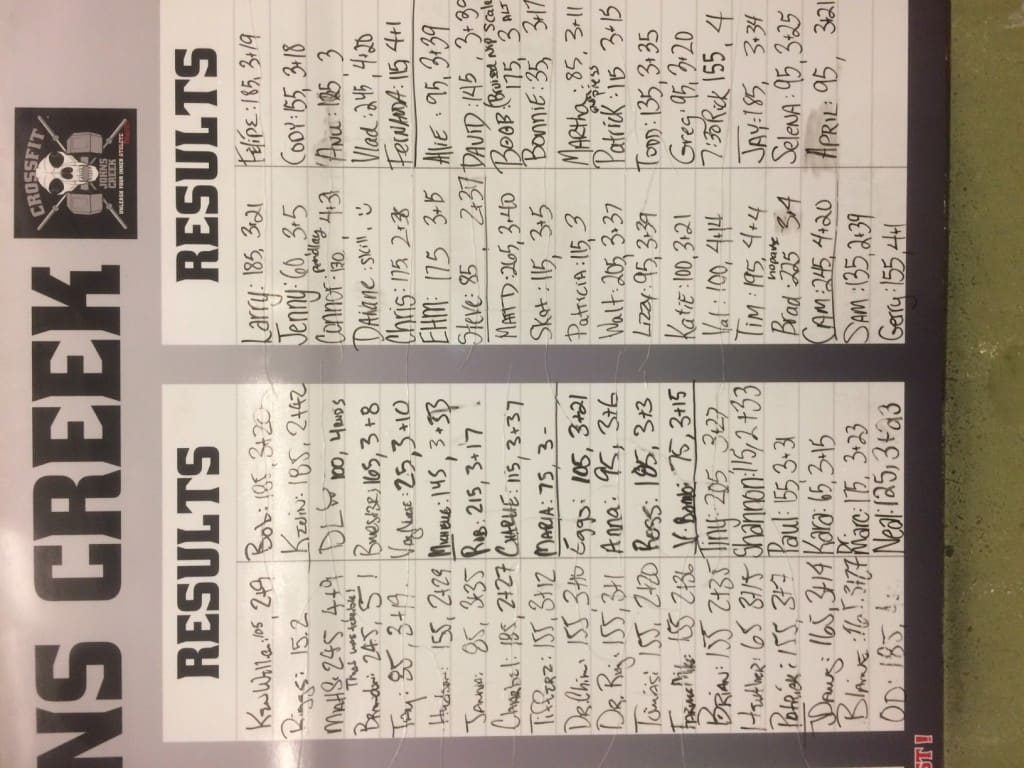 NS CREEK
CROSSFIT
JOHNS
CREEK
UNLEASH YOUR INNER ATHLETE
RESULTS
KewWilla: 105, 2+9
Rings: 152
Matt S: 245 4+9
That was horrible!
Brandon: 245, 5!
Tray: 85, 3+19
Hudson: 155, 2+29
Jamie: 85, 3+35
Charlie 1: 185, 2+27
Tiffierz: 155, 3+12
Dr Chin: 155 3+40
Dr. Roy: 155, 3+1
Tomasi: 155, 2+20
Mike 155 2+36
Brian: 155 2+35
Heather: 65 3+15
Patrick: 155, 3+7
James: 165, 3+14
Blaine: 165, 3+27
OD: 185,
RESULTS
Bob: 185, 3+20
Kevin: 185, 2+62
DLV 100, 4RNDS
165, 3+8
25, 3+10
Michelle: 145, 3+33
Rob: 215, 3+17
Charlie: 115, 3+37
Maria 75, 3-
Eggo: 105, 3+21
Anna: 95, 3+6
Ross: 185, 3+3
V. Bomb: 75, 3+15
Timy: 205 3+27
Shannon: 115, 2+33
Paul: 155 3+31
Kara: 65, 3+15
Marc: 175, 3+23
Neal: 125, 3+23
RESULTS
Larry: 185, 3+21
Jenny: 60, 3+5
pendlay
Connor: 130, 4+3
DeAnne: skill, :)
Chris: 175, 2+38
EHM: 175 3+15
Steve: 85, 2+37
Matt D: 265, 3+40
Skot: 115, 3+5
Patricia: 115, 3
Walt: 205, 3+37
Lizzy: 95, 3+39
Katie: 100, 3+21
Val: 100, 4+14
Tim: 195, 4+4
no pause
Brad: 225 3+4
CAM: 245, 4+20
SAM: 135, 2+39
Gerry: 155, 4+1
RESULTS
Felipe: 185, 3+19
Cody: 155, 3+18
3
Vlad: 245, 4+20
FERNANDA: 115, 4+1
Allie: 95, 3+39
DAVID: 145, 3+30
Boob: 175, 3
Bonnie: 35, 3+17
MARTHa: 85, 3+11
Patrick 115 3+15
Todd: 135, 3+35
Greg: 95, 3+20
7:30 Rick 155, 4
JAY: 185, 3+34
Selena: 95, 3+25
APRIL: 95 3+21
ST!